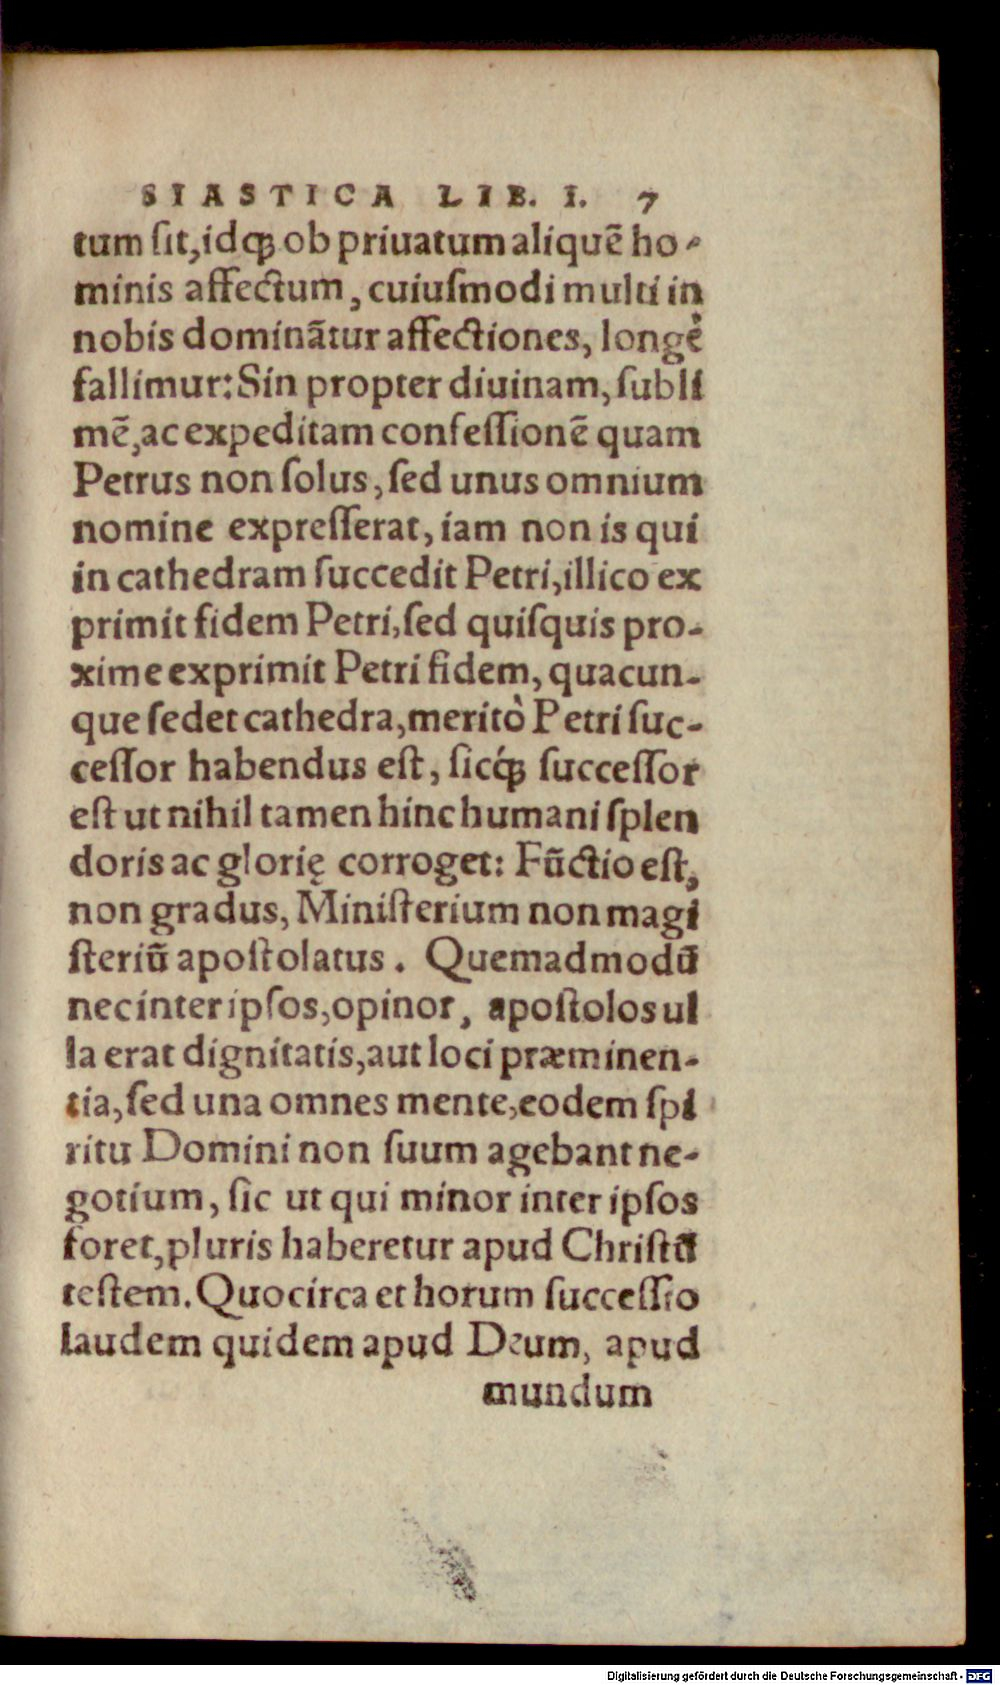 SIASTICA LIB. I. 7
tum ſit, idq́ꝫ ob priuatum aliquē ho-
minis affectum, cuiuſmodi multi in
nobis dominātur affectiones, longè
fallimur: Sin propter diuinam, ſubli
mē, ac expeditam confeſſionē quam
Petrus non ſolus, ſed unus omnium
nomine expreſſerat, iam non is qui
in cathedram ſuccedit Petri, illico ex
primit fidem Petri, ſed quiſquis pro-
xime exprimit Petri fidem, quacun-
que ſedet cathedra, meritò Petri ſuc-
ceſſor habendus eſt, ſicq́ꝫ ſucceſſor
eſt ut nihil tamen hinc humani ſplen
doris ac glorię corroget: Fūctio eſt,
non gradus, Miniſterium non magi
ſteriū apoſtolatus. Quemadmodū
nec inter ipſos, opinor, apoſtolos ul
la erat dignitatis, aut loci præminen-
tia, ſed una omnes mente, eodem ſpi
ritu Domini non ſuum agebant ne-
gotium, ſic ut qui minor inter ipſos
foret, pluris haberetur apud Chriſtū
teſtem. Quocirca et horum ſucceſſio
laudem quidem apud Deum, apud
mundum
Digitalisierung gefördert durch die Deutsche Forschungsgemeinschaft - DFG